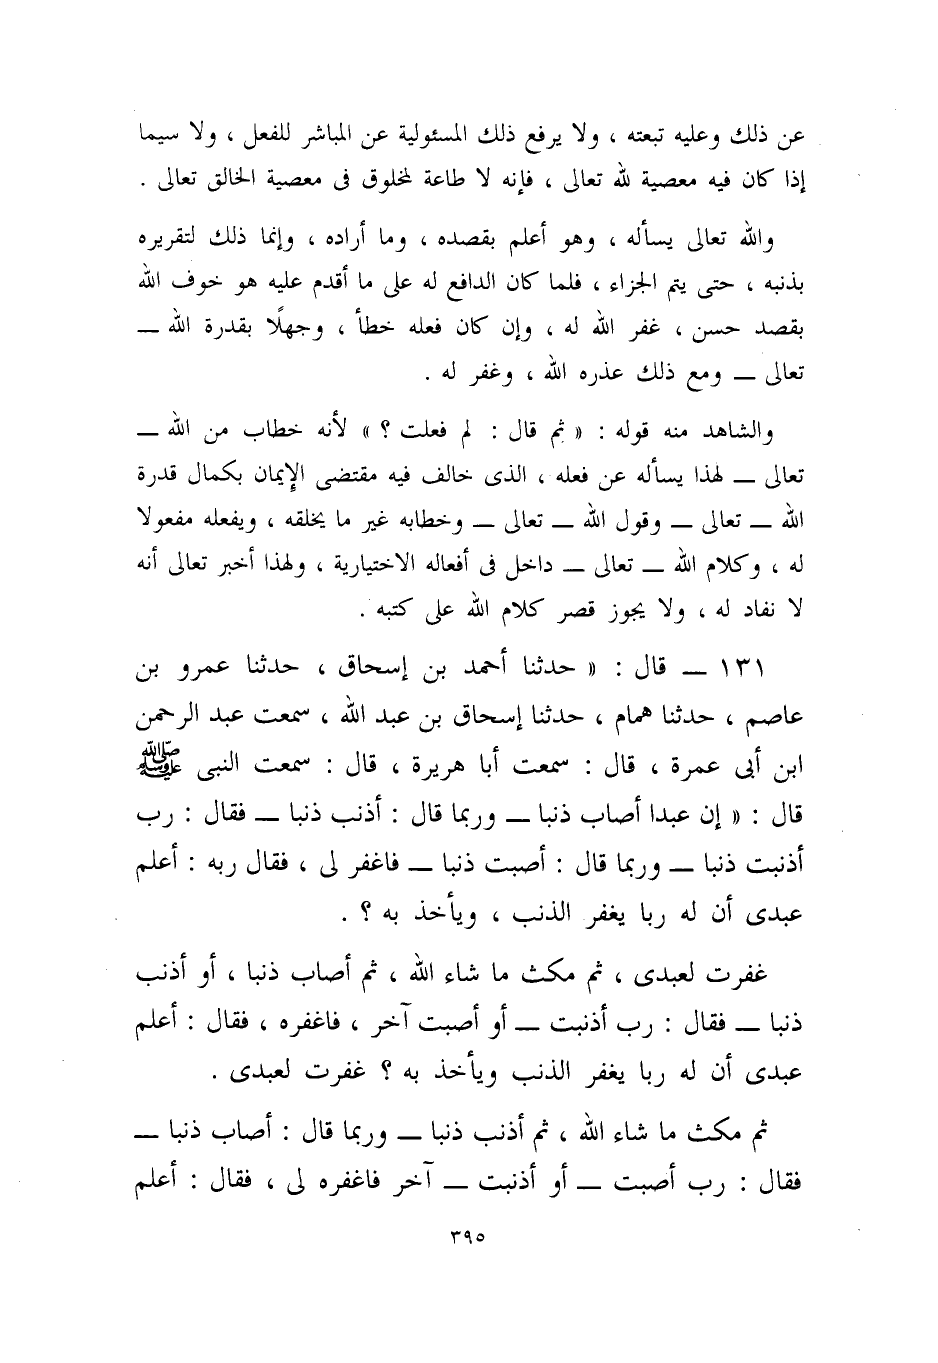 عن ذلك وعليه تبعته ، ولا يرفع ذلك المسئولية عن المباشر للفعل ، ولا سيما
إذا كان فيه معصية لله تعالى ، فإنه لا طاعة لمخلوق فى معصية الخالق تعالى .
والله تعالى يسأله ، وهو أعلم بقصده ، وما أراده ، وإنما ذلك لتقريره
بذنبه ، حتى يتم الجزاء ، فلما كان الدافع له على ما أقدم عليه هو خوف الله
بقصد حسن ، غفر الله له ، وإن كان فعله خطأ ، وجهلًا بقدرة الله ــ
تعالى ــ ومع ذلك عذره الله ، وغفر له .
والشاهد منه قوله : « ثم قال : لم فعلت ؟ » لأنه خطاب من الله ــ
تعالى ــ لهذا يسأله عن فعله ، الذى خالف فيه مقتضى الإيمان بكمال قدرة
الله ــ تعالى ــ وقول الله ــ تعالى ــ وخطابه غير ما يخلقه ، ويفعله مفعولا
له ، وكلام الله ــ تعالى ــ داخل فى أفعاله الاختيارية ، ولهذا أخبر تعالى أنه
لا نفاد له ، ولا يجوز قصر كلام الله على كتبه .
١٣١ ــ قال : « حدثنا أحمد بن إسحاق ، حدثنا عمرو بن
عاصم ، حدثنا همام ، حدثنا إسحاق بن عبد الله ، سمعت عبد الرحمن
ابن أبى عمرة ، قال : سمعت أبا هريرة ، قال : سمعت النبى ﷺ
قال : « إن عبدا أصاب ذنبا ــ وربما قال : أذنب ذنبا ــ فقال : رب
أذنبت ذنبا ــ وربما قال : أصبت ذنبا ــ فاغفر لى ، فقال ربه : أعلم
عبدى أن له ربا يغفر الذنب ، ويأخذ به ؟ .
غفرت لعبدى ، ثم مكث ما شاء الله ، ثم أصاب ذنبا ، أو أذنب
ذنبا ــ فقال : رب أذنبت ــ أو أصبت آخر ، فاغفره ، فقال : أعلم
عبدى أن له ربا يغفر الذنب ويأخذ به ؟ غفرت لعبدى .
ثم مكث ما شاء الله ، ثم أذنب ذنبا ــ وربما قال : أصاب ذنبا ــ
فقال : رب أصبت ــ أو أذنبت ــ آخر فاغفره لى ، فقال : أعلم
٣٩٥